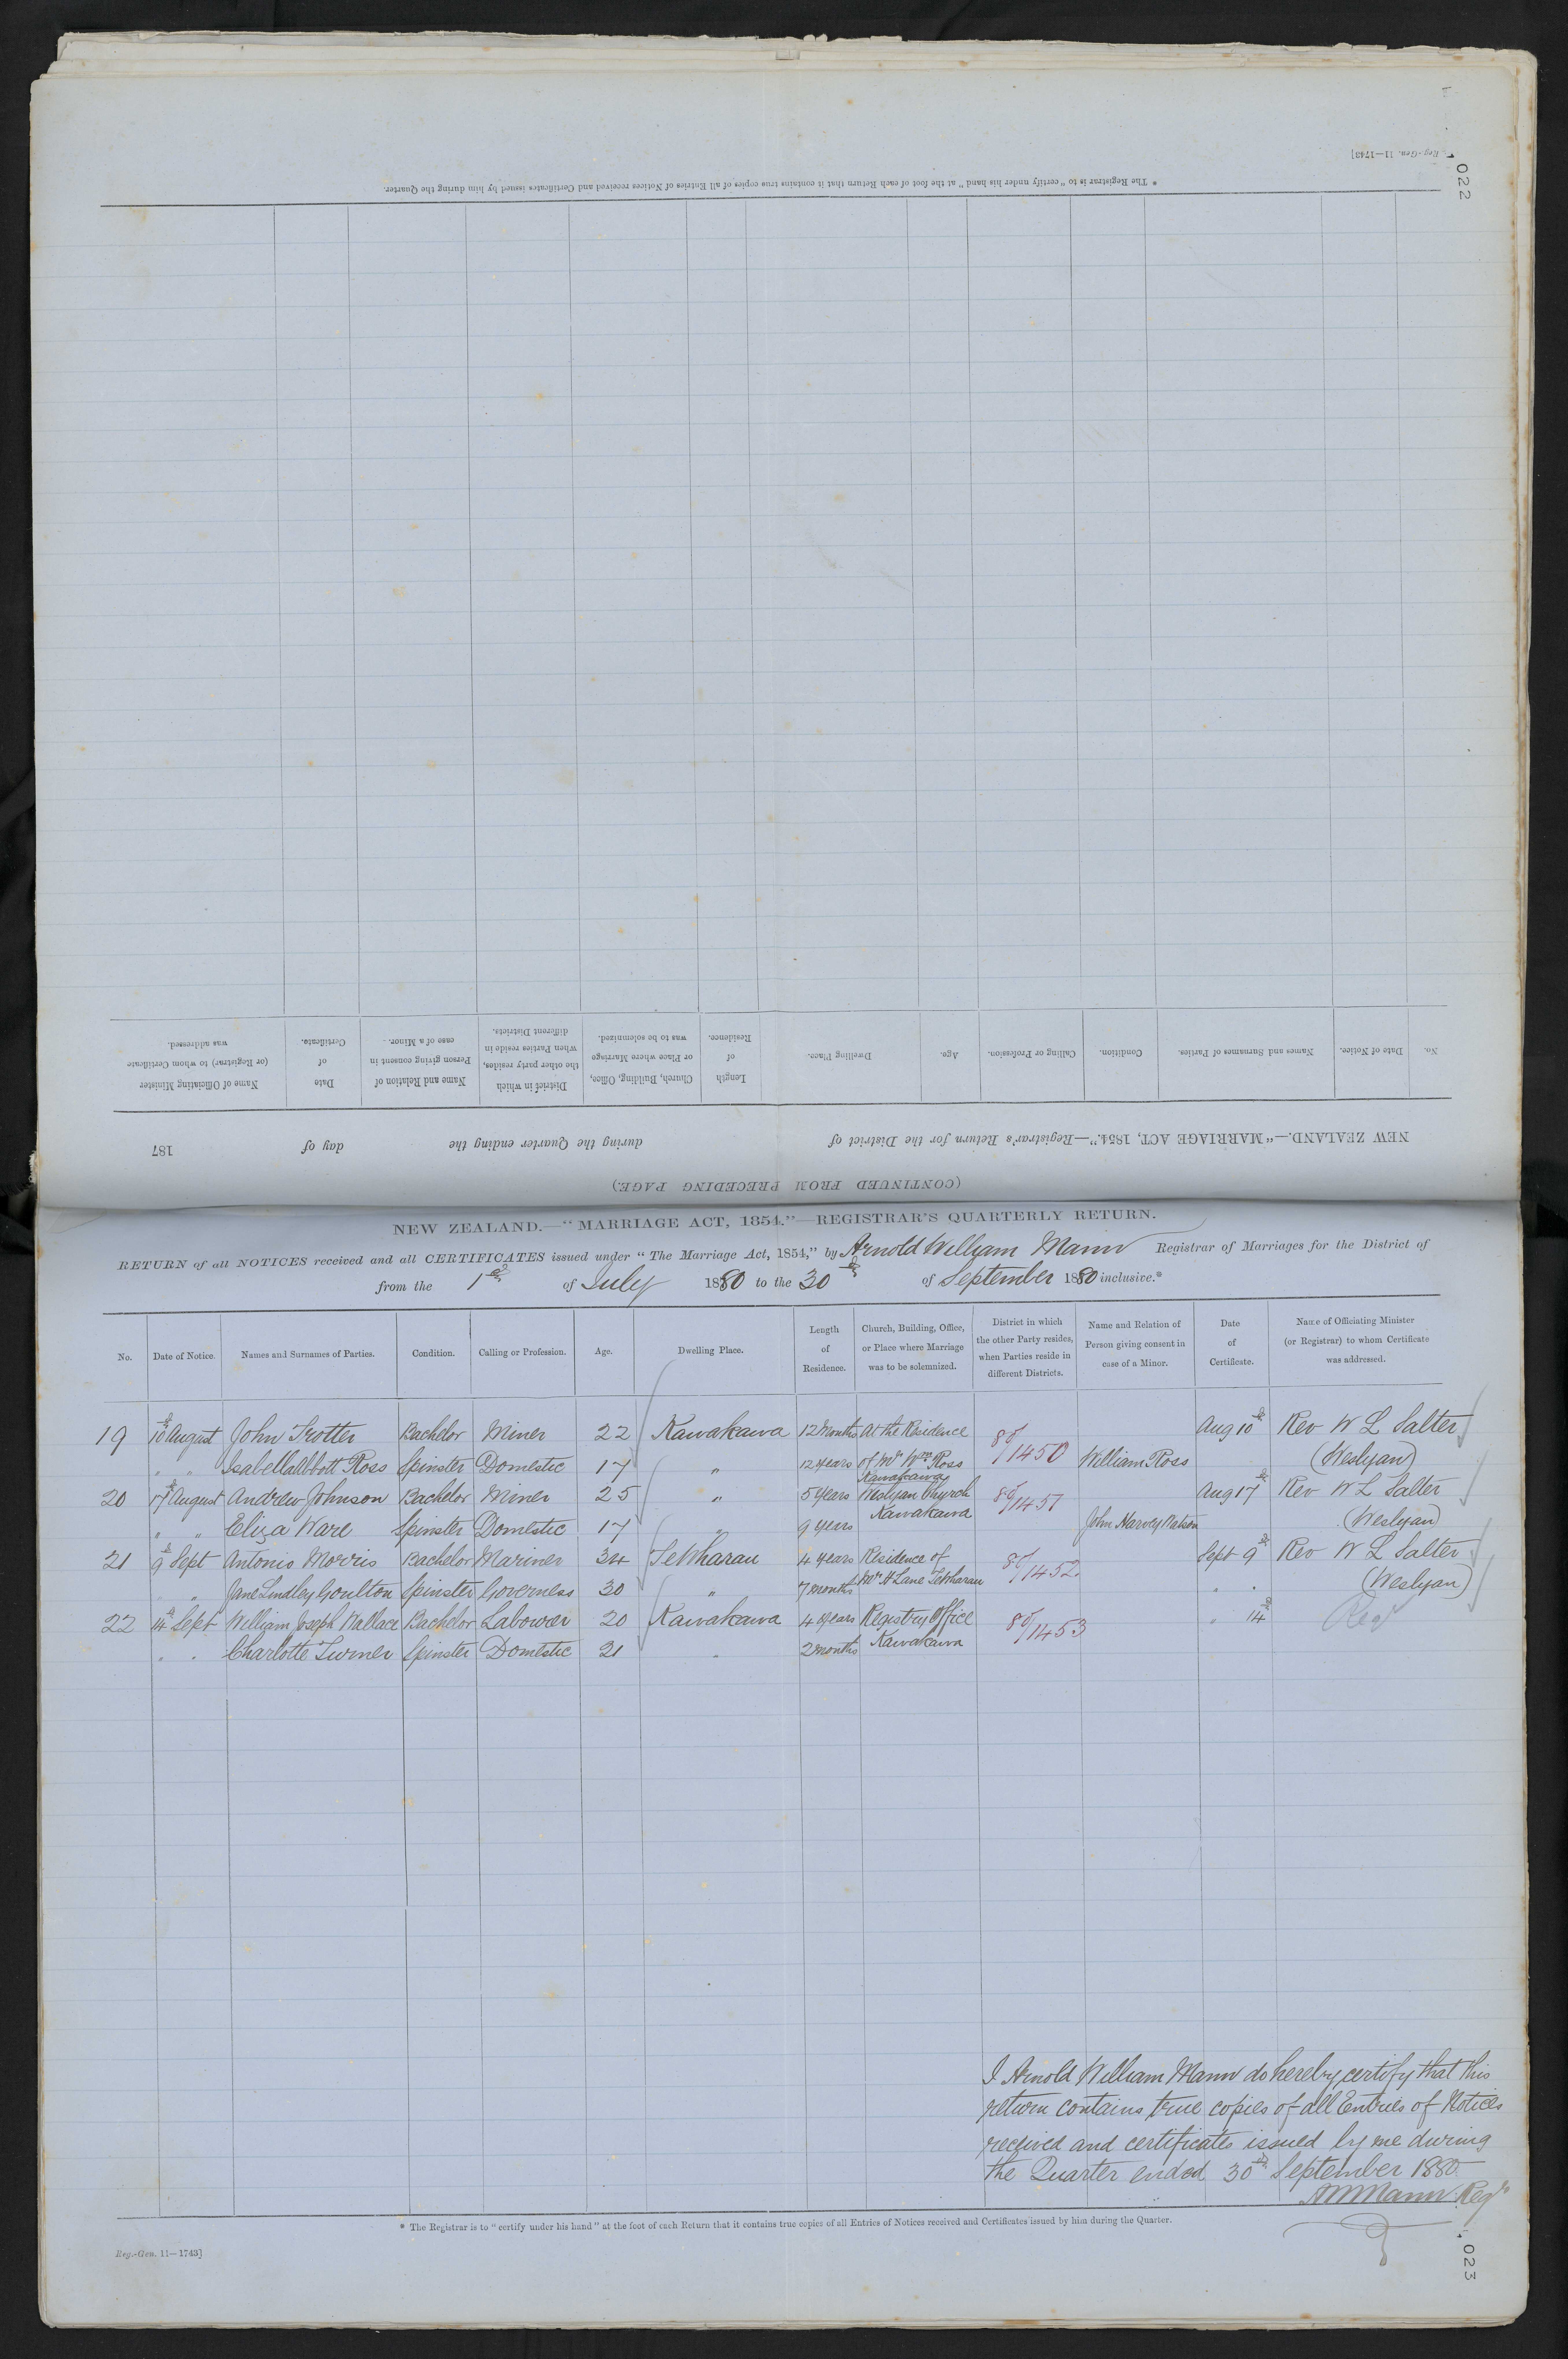 Reg.-Gen. 11—1743]
022
* The Registrar is to "certify under his hand" at the foot of each Return that it contains true copies of all Entries of Notices received and Certificates issued by him during the Quarter.
No. Date of Notice. Names and Surnames of Parties. Condition. Calling or Profession. Age. Dwelling Place. Length of Residence. Church, Building, Office, or Place where Marriage was to be solemnized. District in which the other party resides, when Parties reside in different Districts. Name and Relation of Person giving consent in case of a Minor. Date of Certificate. Name of Officiating Minister (or Registrar) to whom Certificate was addressed.
NEW ZEALAND.—"MARRIAGE ACT, 1854."—Registrar's Return for the District of during the Quarter ending the day of 187
(CONTINUED FROM PRECEDING PAGE.)
NEW ZEALAND.—"MARRIAGE ACT, 1854."—REGISTRAR'S QUARTERLY RETURN.
RETURN of all NOTICES received and all CERTIFICATES issued under "The Marriage Act, 1854," by Arnold William Mann Registrar of Marriages for the District of
from the 1st of July 1880 to the 30th of September 1880 inclusive.*
No. Date of Notice. Names and Surnames of Parties. Condition. Calling or Profession. Age. Dwelling Place. Length of Residence. Church, Building, Office, or Place where Marriage was to be solemnized. District in which the other Party resides, when Parties reside in different Districts. Name and Relation of Person giving consent in case of a Minor. Date of Certificate. Name of Officiating Minister (or Registrar) to whom Certificate was addressed.
19 10th August John Trotter Bachelor Miner 22 Kawakawa 12 Months At the Residence 80/1450 Aug 10th Rev W L Salter
" " Isabella Abbott Ross Spinster Domestic 17 " 12 years of Mr Wm Ross Kawakawa William Ross (Weslyan)
20 17th August Andrew Johnson Bachelor Miner 25 " 5 years Weslyan Church 80/1451 Aug 17th Rev W L Salter
" " Eliza Ware Spinster Domestic 17 " 9 years Kawakawa John Harvey Watson (Weslyan)
21 9th Sept Antonio Morris Bachelor Mariner 34 TeWharau 4 years Residence of 80/1452 Sept 9th Rev W L Salter
" " Jane Lindley Goulton Spinster Governess 30 " 7 months Mr H Lane TeWharau " " (Weslyan)
22 14th Sept William Joseph Wallace Bachelor Labourer 20 Kawakawa 4 years Registry Office 80/1453 " 14th Regr
" " Charlotte Turner Spinster Domestic 21 " 2 months Kawakawa
I Arnold William Mann do hereby certify that this
return contains true copies of all Entries of Notices
received and certificates issued by me during
the Quarter ended 30th September 1880.
AWMann Regr
* The Registrar is to "certify under his hand" at the foot of each Return that it contains true copies of all Entries of Notices received and Certificates issued by him during the Quarter.
Reg.-Gen. 11—1743]
023